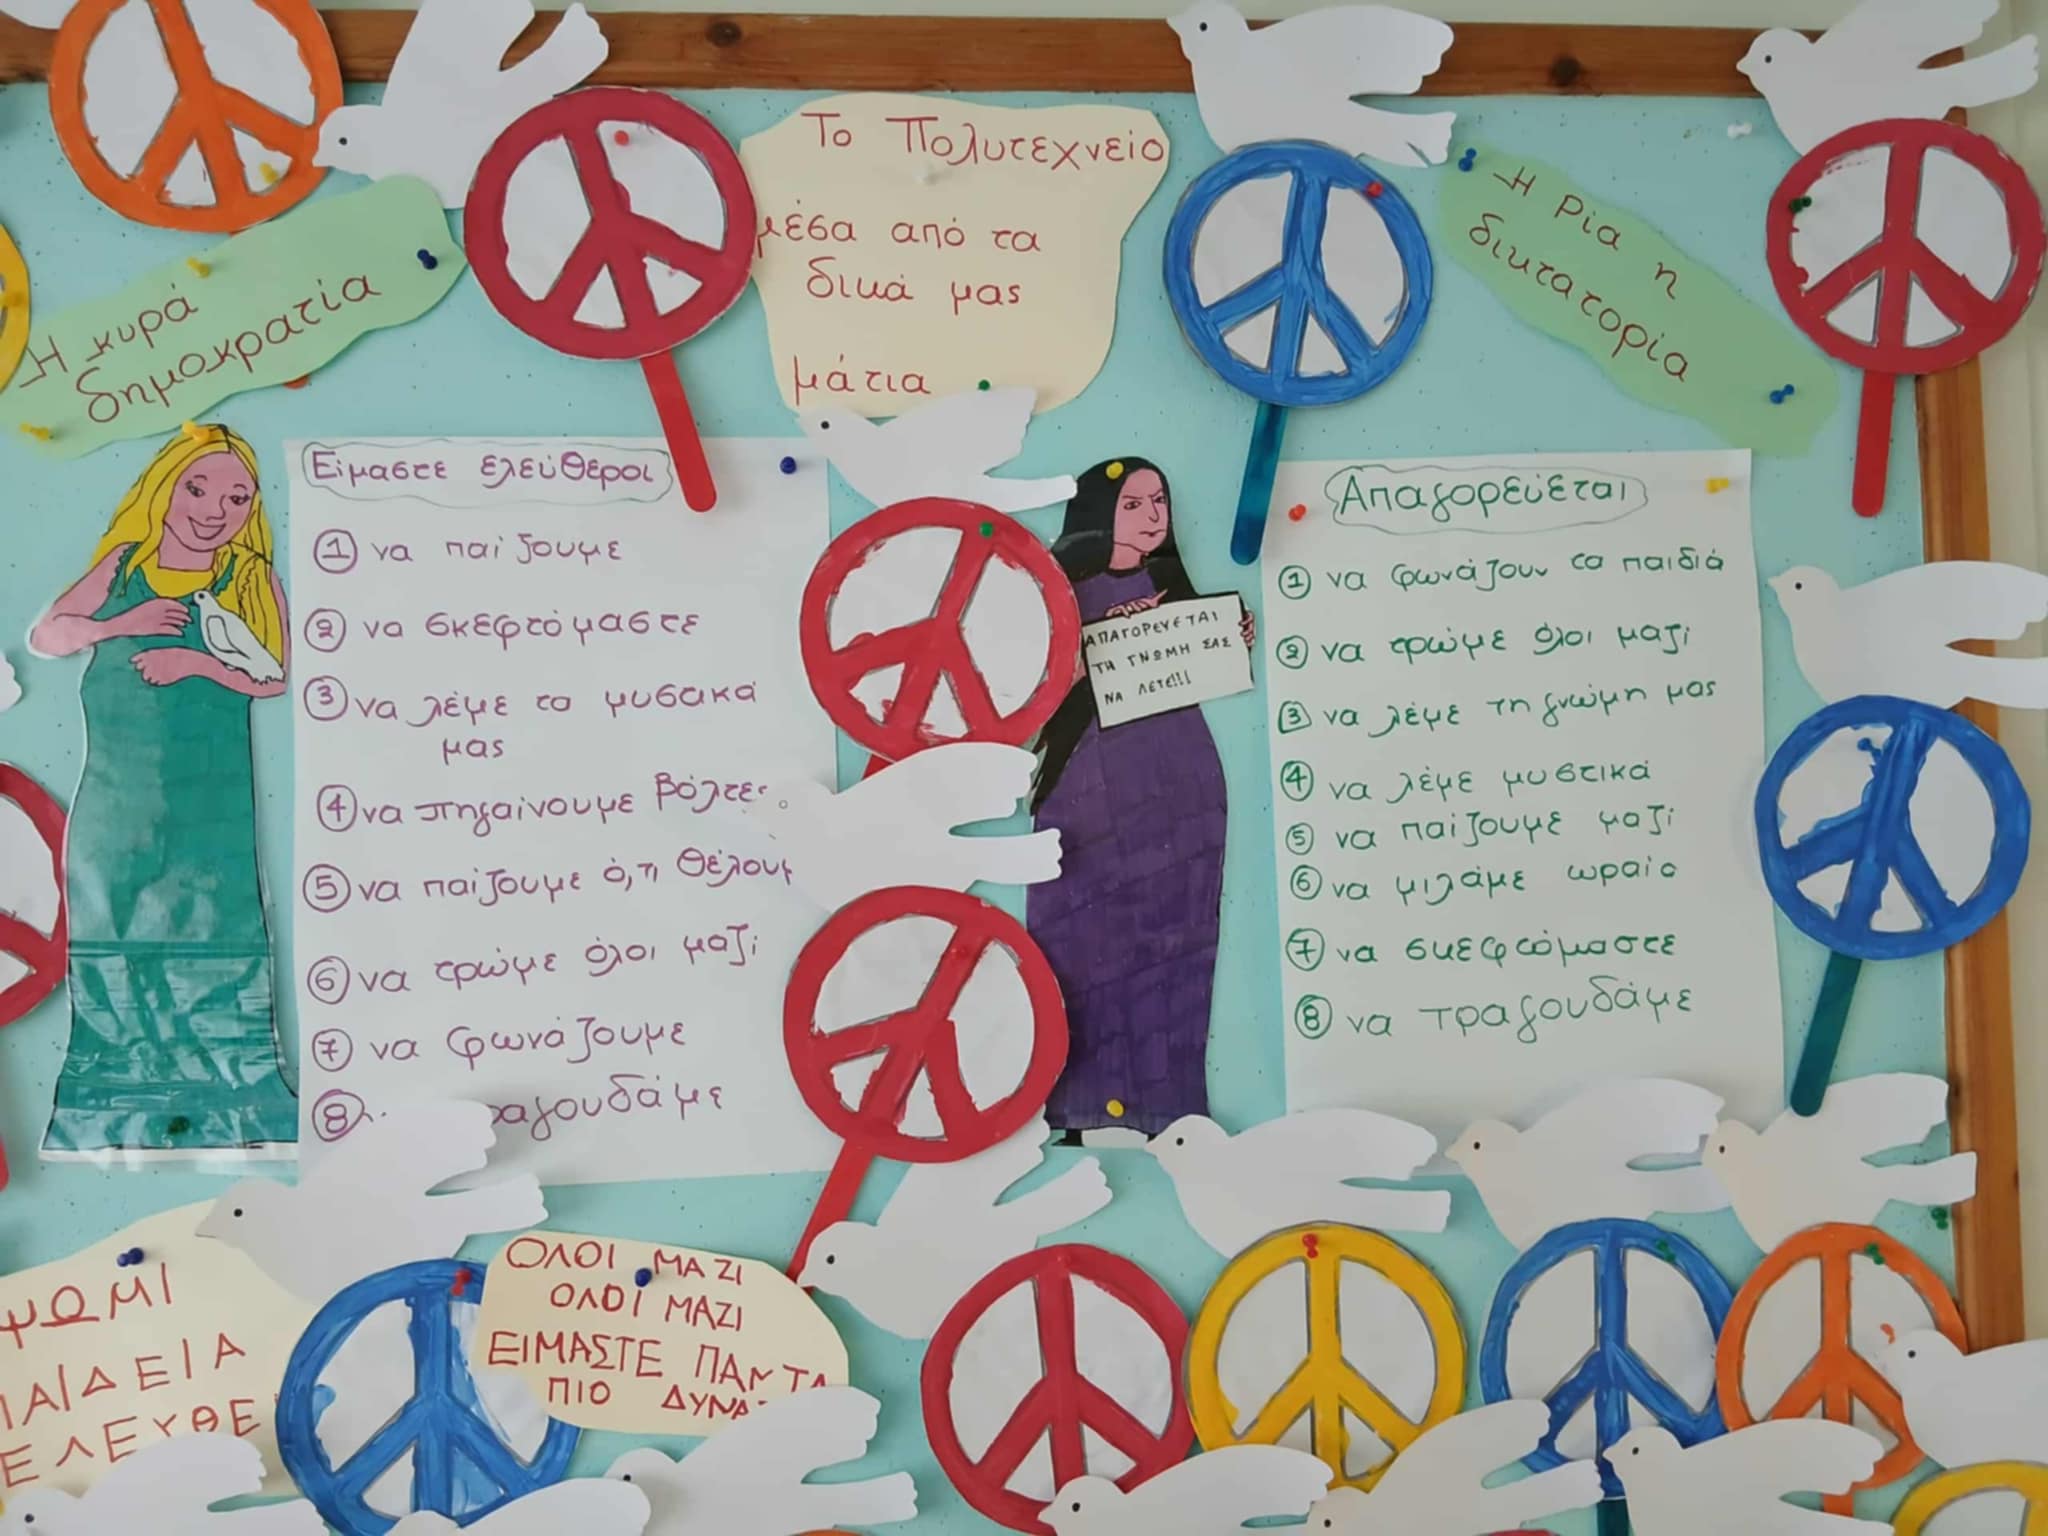 Το Πολυτεχνείο
μέσα από τα
δικά μας
μάτια
Η κυρά
δημοκρατία
Η Ρία η
δικτατορία
Είμαστε ελεύθεροι
① να παίζουμε
② να σκεφτόμαστε
③ να λέμε τα μυστικά
μας
④ να πηγαίνουμε βόλτες
⑤ να παίζουμε ό,τι
⑥ να τρώμε όλοι μαζί
⑦ να φωνάζουμε
⑧
ΑΠΑΓΟΡΕΥΕΤΑΙ
ΤΗ ΓΝΩΜΗ ΣΑΣ
ΝΑ ΛΕΤΕ!!!
Απαγορεύεται
① να φωνάζουν τα παιδιά
② να τρώμε όλοι μαζί
③ να λέμε τη γνώμη μας
④ να λέμε μυστικά
⑤ να παίζουμε μαζί
⑥ να μιλάμε ωραία
⑦ να σκεφτόμαστε
⑧ να τραγουδάμε
ΨΩΜΙ
ΟΛΟΙ ΜΑΖΙ
ΟΛΟΙ ΜΑΖΙ
ΕΙΜΑΣΤΕ ΠΑΝΤΑ
ΠΙΟ